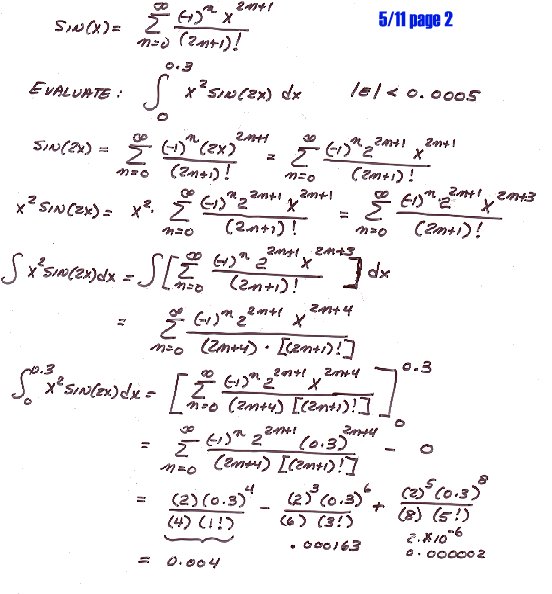 5/11 page 2
SIN(x) = ∞ Σ n=0 (-1)^n x^{2n+1} / (2n+1)!
EVALUATE: ∫_0^{0.3} x² SIN(2x) dx |E| < 0.0005
SIN(2x) = ∞ Σ n=0 (-1)^n (2x)^{2n+1} / (2n+1)! = ∞ Σ n=0 (-1)^n 2^{2n+1} x^{2n+1} / (2n+1)!
x² SIN(2x) = x² · ∞ Σ n=0 (-1)^n 2^{2n+1} x^{2n+1} / (2n+1)! = ∞ Σ n=0 (-1)^n 2^{2n+1} x^{2n+3} / (2n+1)!
∫ x² SIN(2x) dx = ∫ [ ∞ Σ n=0 (-1)^n 2^{2n+1} x^{2n+3} / (2n+1)! ] dx
= ∞ Σ n=0 (-1)^n 2^{2n+1} x^{2n+4} / (2n+4) · [(2n+1)!]
∫_0^{0.3} x² SIN(2x) dx = [ ∞ Σ n=0 (-1)^n 2^{2n+1} x^{2n+4} / (2n+4) [(2n+1)!] ]_0^{0.3}
= ∞ Σ n=0 (-1)^n 2^{2n+1} (0.3)^{2n+4} / (2n+4) [(2n+1)!] - 0
= (2)(0.3)^4 / (4)(1!) - (2)^3 (0.3)^6 / (6)(3!) + (2)^5 (0.3)^8 / (8)(5!)
.000163 2.×10^{-6}
= 0.004 0.000002